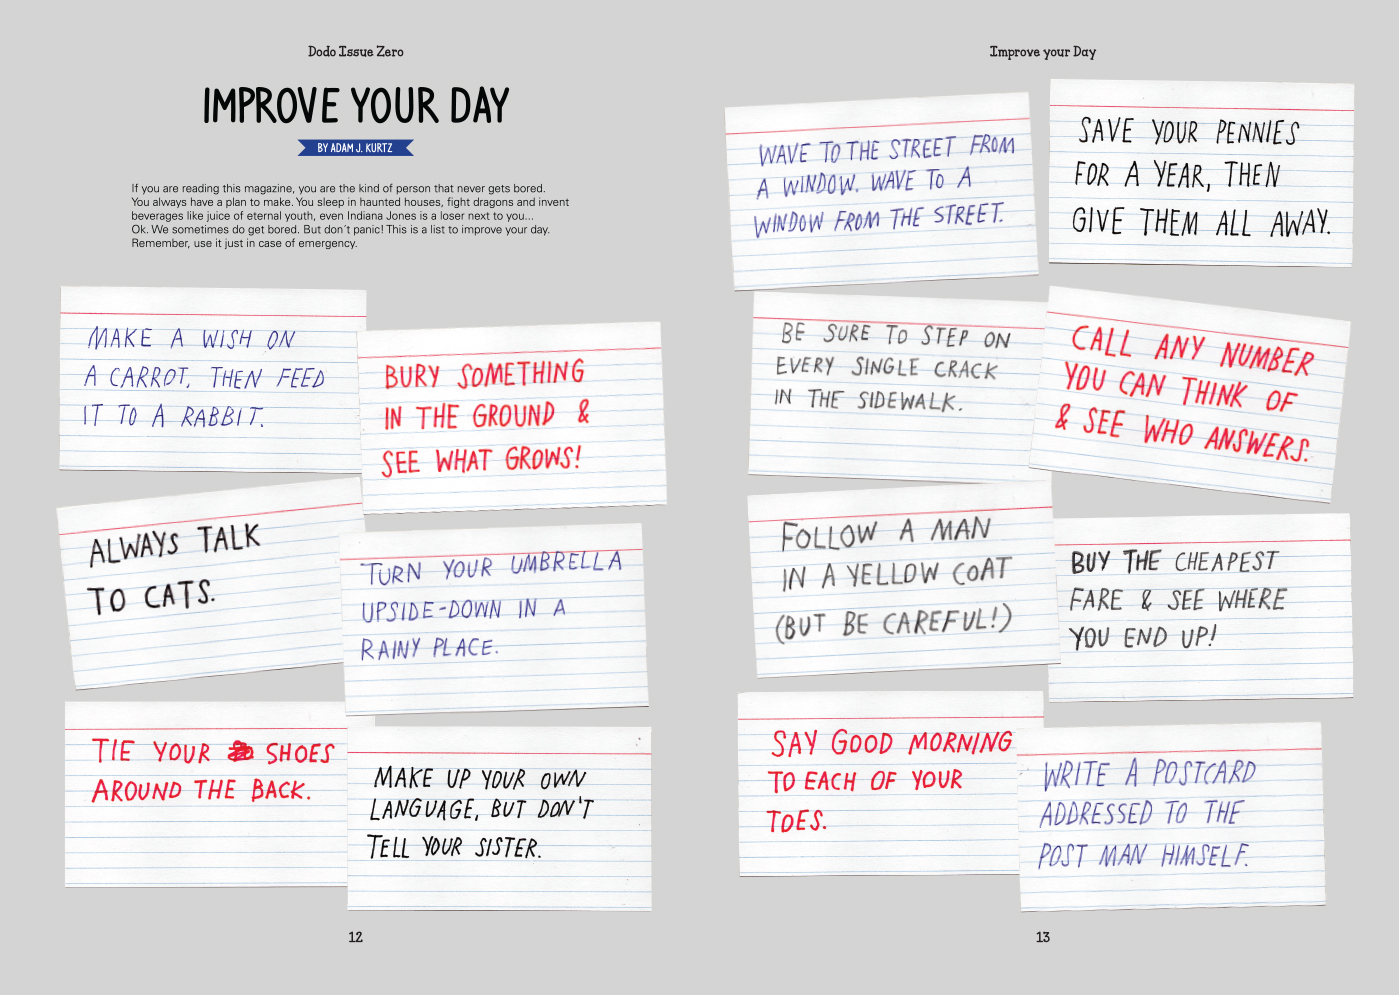 Dodo Issue Zero
IMPROVE YOUR DAY
BY ADAM J. KURTZ
If you are reading this magazine, you are the kind of person that never gets bored.
You always have a plan to make. You sleep in haunted houses, fight dragons and invent
beverages like juice of eternal youth, even Indiana Jones is a loser next to you...
Ok. We sometimes do get bored. But don´t panic! This is a list to improve your day.
Remember, use it just in case of emergency.
MAKE A WISH ON
A CARROT, THEN FEED
IT TO A RABBIT.
BURY SOMETHING
IN THE GROUND &
SEE WHAT GROWS!
ALWAYS TALK
TO CATS.
TURN YOUR UMBRELLA
UPSIDE-DOWN IN A
RAINY PLACE.
TIE YOUR SHOES
AROUND THE BACK.
MAKE UP YOUR OWN
LANGUAGE, BUT DON'T
TELL YOUR SISTER.
12
Improve your Day
WAVE TO THE STREET FROM
A WINDOW. WAVE TO A
WINDOW FROM THE STREET.
SAVE YOUR PENNIES
FOR A YEAR, THEN
GIVE THEM ALL AWAY.
BE SURE TO STEP ON
EVERY SINGLE CRACK
IN THE SIDEWALK.
CALL ANY NUMBER
YOU CAN THINK OF
& SEE WHO ANSWERS.
FOLLOW A MAN
IN A YELLOW COAT
(BUT BE CAREFUL!)
BUY THE CHEAPEST
FARE & SEE WHERE
YOU END UP!
SAY GOOD MORNING
TO EACH OF YOUR
TOES.
WRITE A POSTCARD
ADDRESSED TO THE
POST MAN HIMSELF.
13